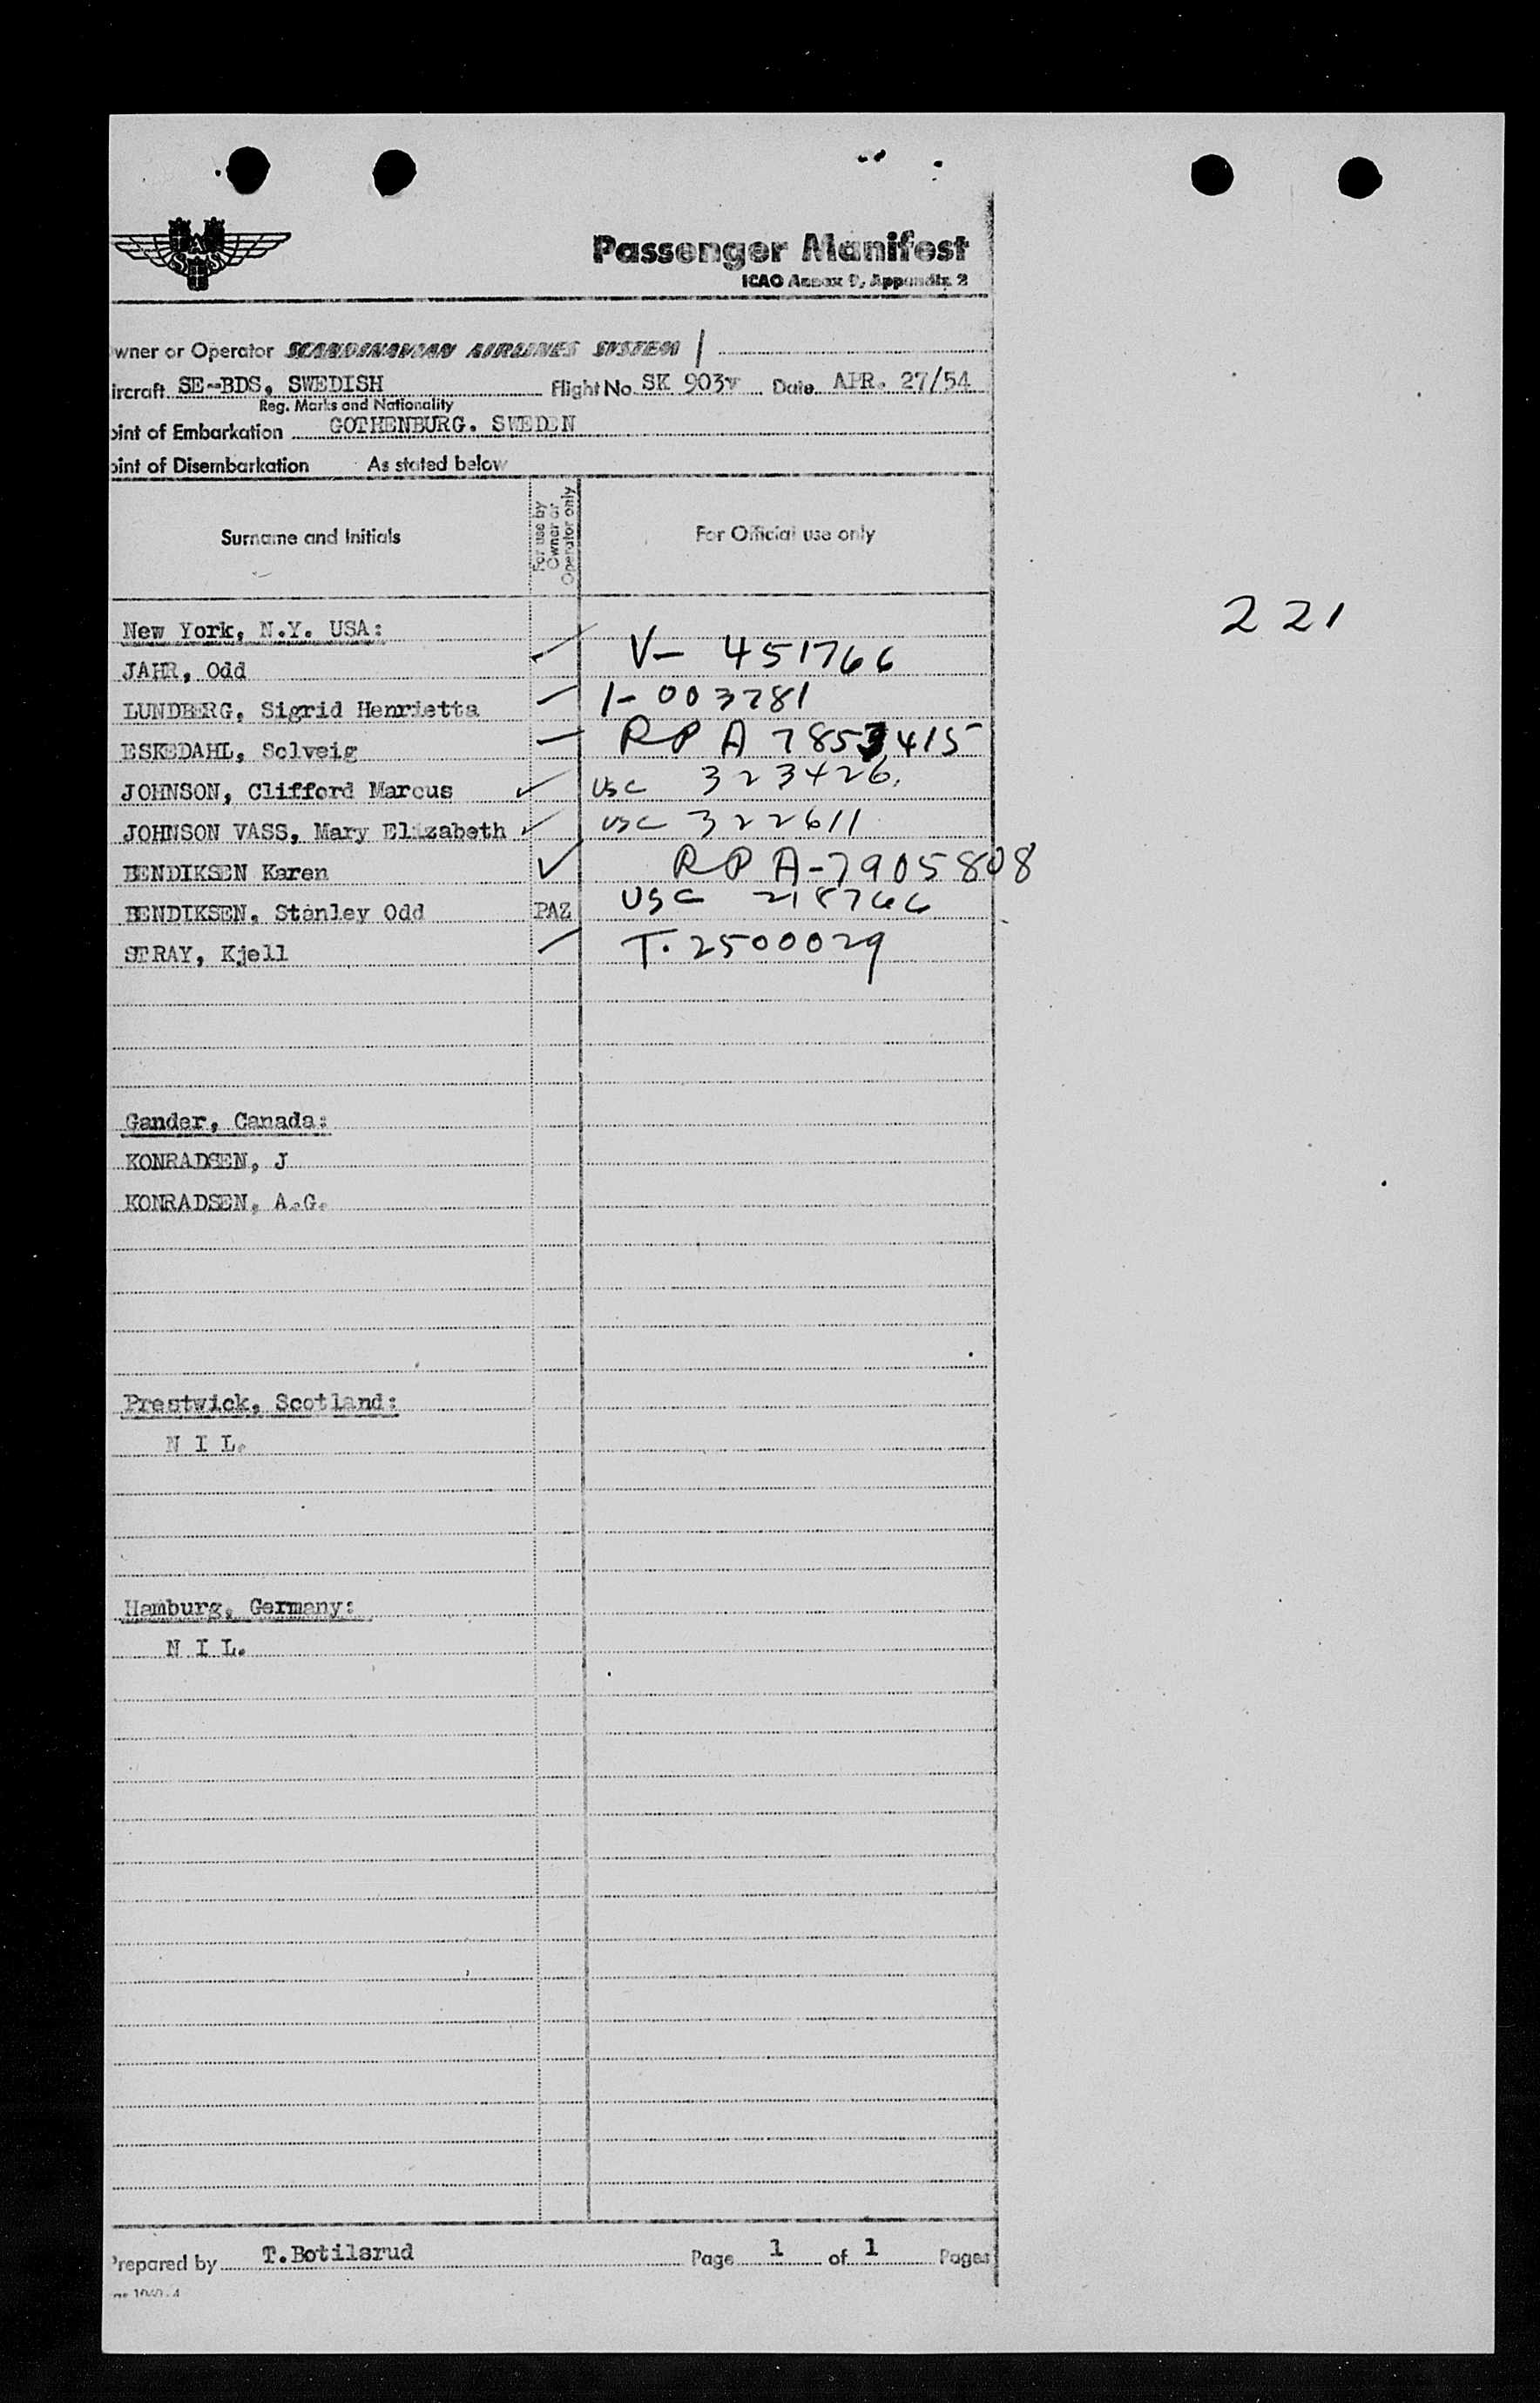 SAS
Passenger Manifest
ICAO Annex 9, Appendix 2
wner or Operator SCANDINAVIAN AIRLINES SYSTEM /
ircraft SE-BDS, SWEDISH Flight No. SK 903 Date APR. 27/54
Reg. Marks and Nationality
oint of Embarkation GOTHENBURG. SWEDEN
oint of Disembarkation As stated below
Surname and Initials
For use by Owner or Operator only
For Official use only
221
New York, N.Y. USA:
JAHR, Odd V- 451766
LUNDBERG, Sigrid Henrietta 1-003781
ESKEDAHL, Solveig RP A 7853415
JOHNSON, Clifford Marcus ✓ USC 323426.
JOHNSON VASS, Mary Elizabeth ✓ USC 322611
BENDIKSEN Karen ✓ RP A-7905808
BENDIKSEN, Stanley Odd PAZ USC 218766
STRAY, Kjell T. 2500029
Gander, Canada:
KONRADSEN, J
KONRADSEN, A.G.
Prestwick, Scotland:
N I L.
Hamburg, Germany:
N I L.
Prepared by T.Botilsrud Page 1 of 1 Pages